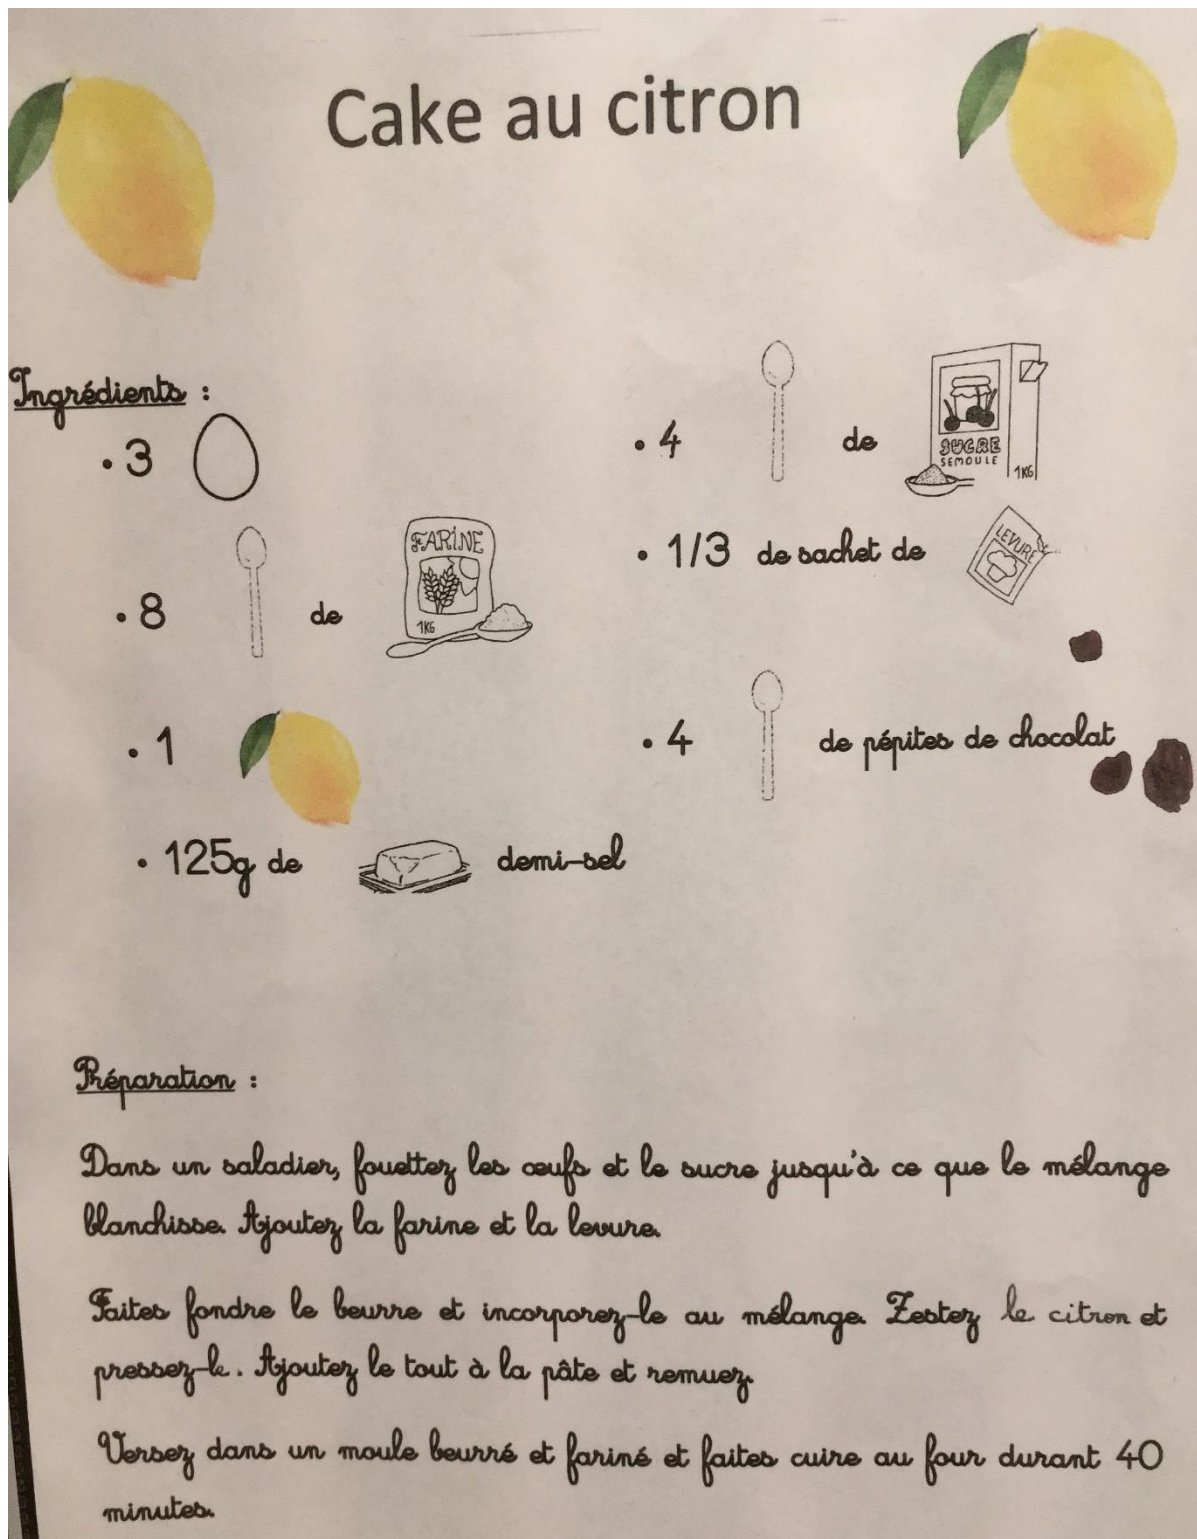 Cake au citron
Ingrédients :
• 3
• 8 de FARINE 1KG
• 1
• 125g de demi-sel
• 4 de SUCRE SEMOULE 1KG
• 1/3 de sachet de LEVURE
• 4 de pépites de chocolat
Préparation :
Dans un saladier, fouettez les œufs et le sucre jusqu'à ce que le mélange
blanchisse. Ajoutez la farine et la levure.
Faites fondre le beurre et incorporez-le au mélange. Zestez le citron et
pressez-le. Ajoutez le tout à la pâte et remuez.
Versez dans un moule beurré et fariné et faites cuire au four durant 40
minutes.